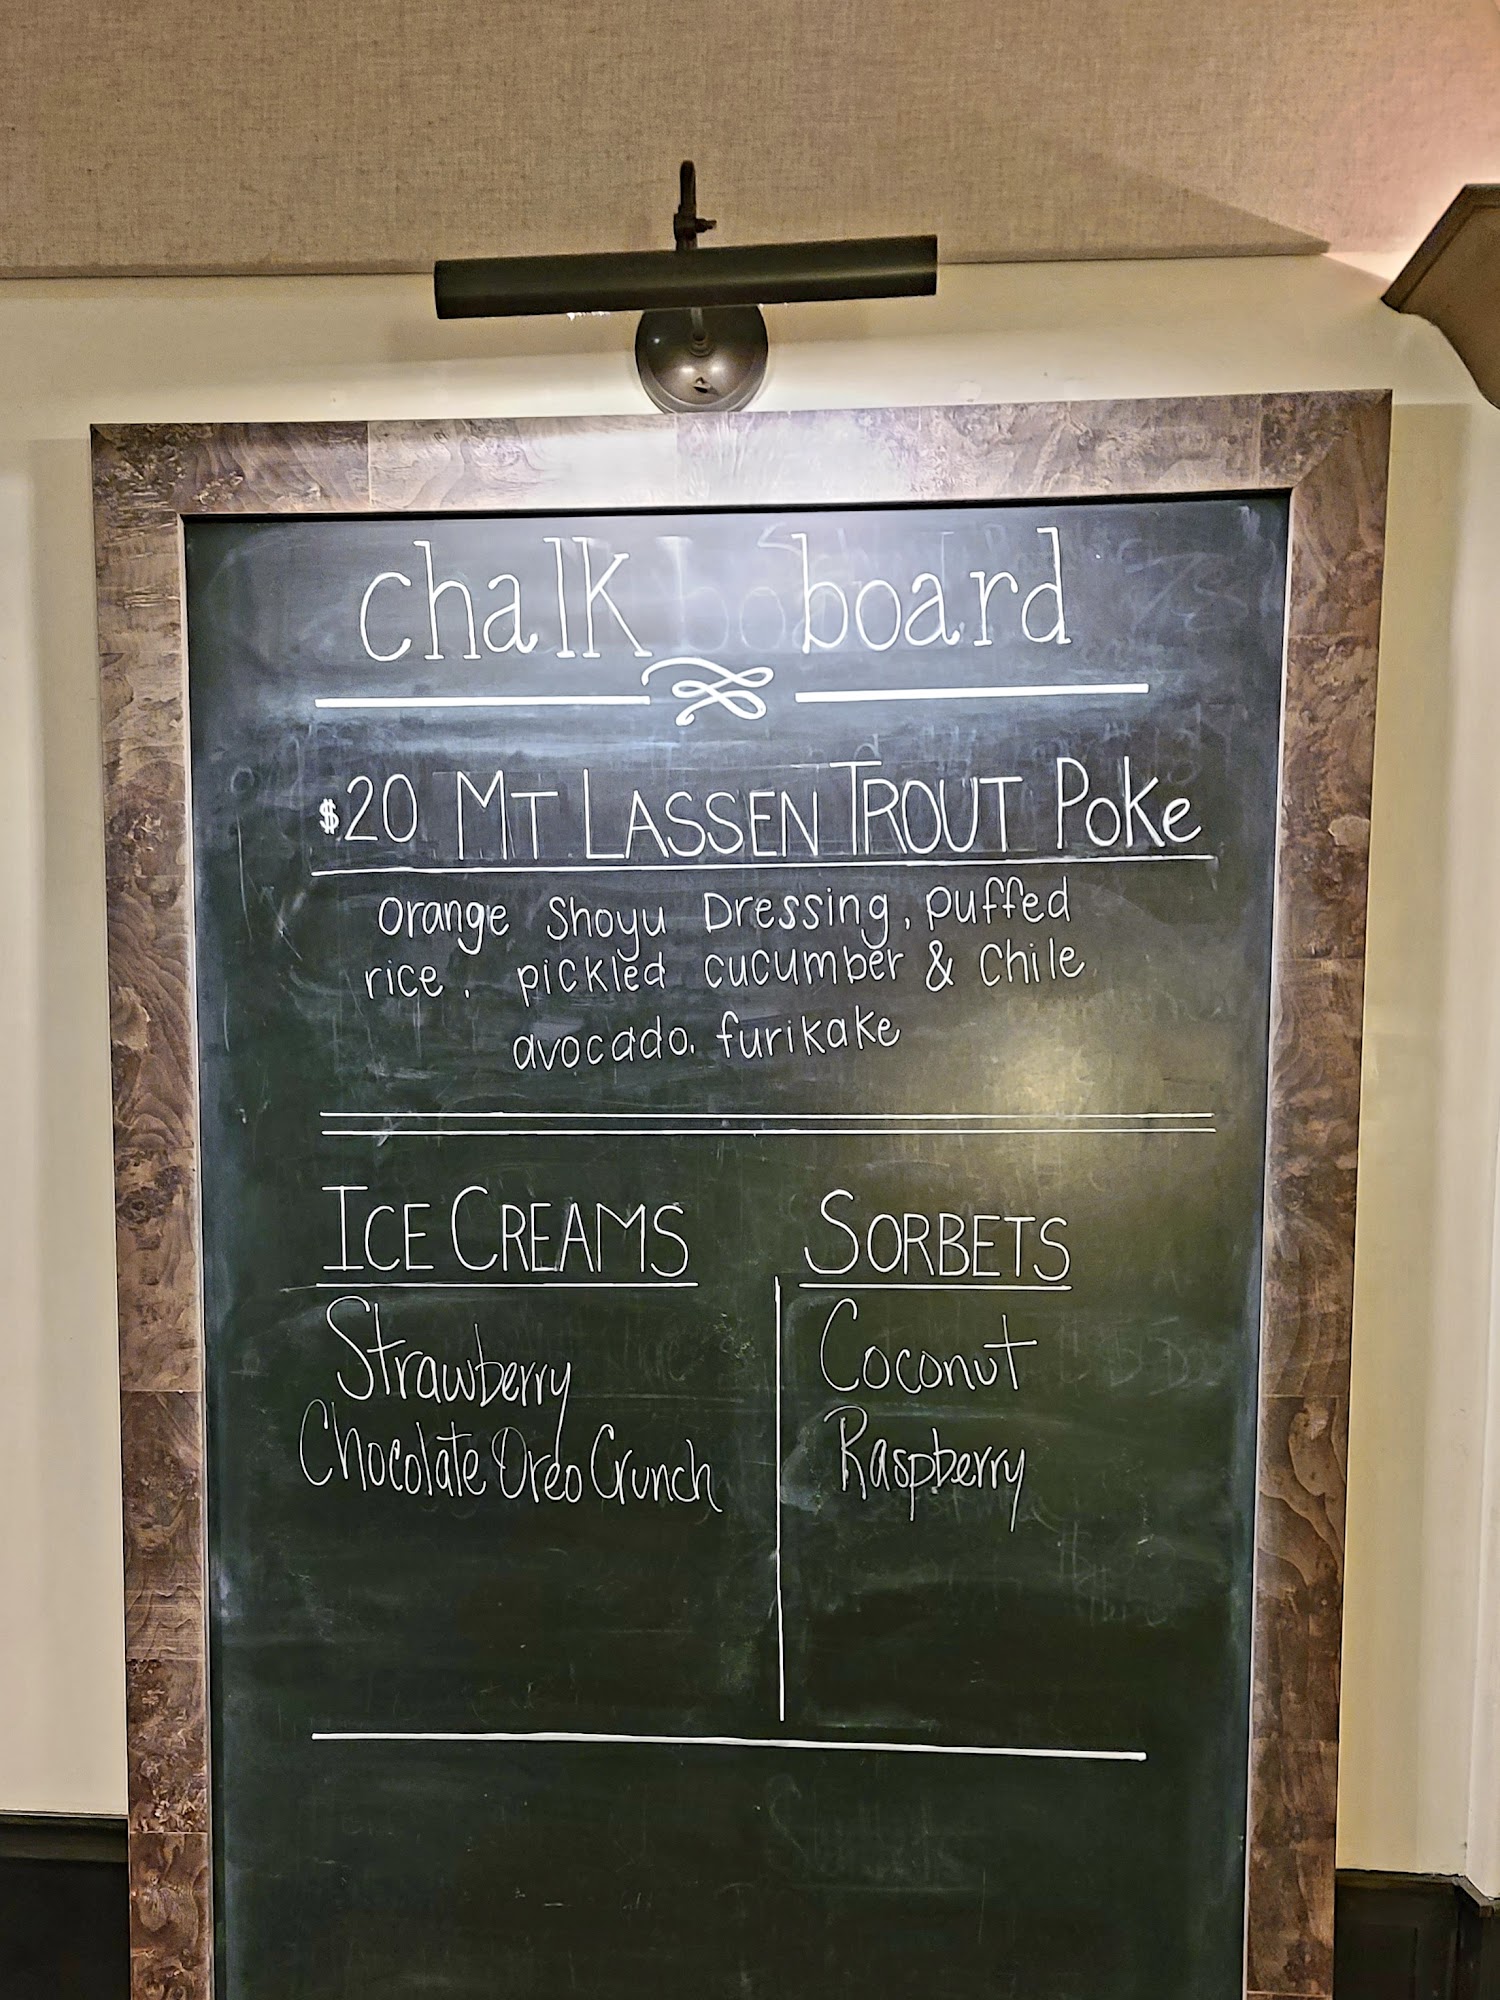 chalk board
$20 MT LASSEN TROUT POKe
orange Shoyu Dressing, puffed
rice, pickled cucumber & chile
avocado, furikake
ICE CREAMS
Strawberry
Chocolate Oreo Crunch
SORBETS
Coconut
Raspberry